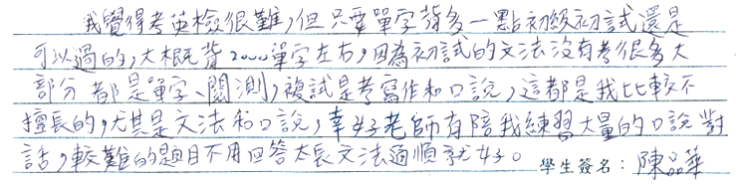 我覺得考英檢很難,但只要單字背多一點初級初試還是
可以過的,大概背2000單字左右,因為初試的文法沒有考很多大
部分都是單字、閱測,複試是考寫作和口說,這都是我比較不
擅長的,尤其是文法和口說,幸好老師有陪我練習大量的口說對
話,較難的題目不用回答太長文法通順就好。學生簽名:陳品華